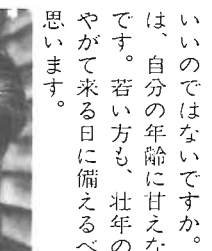 いいのではないですか。
は、自分の年齢に甘えな
です。若い方も、壮年の
やがて来る日に備えるべ
思います。